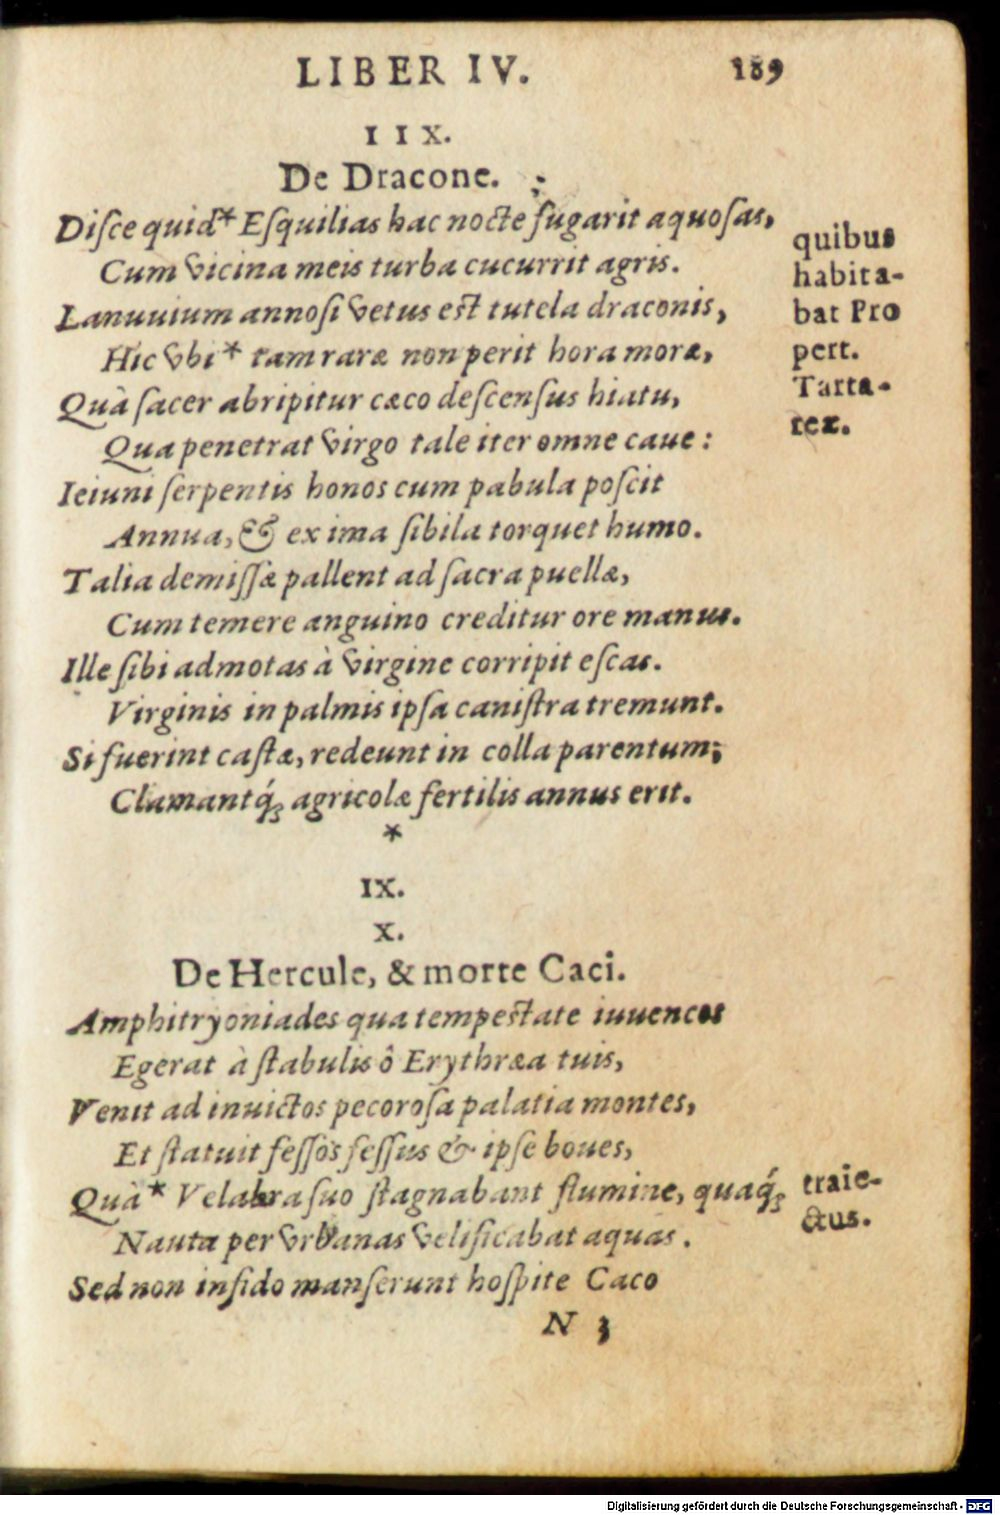 LIBER IV. 189
I I X.
De Dracone.
Disce quid* Esquilias hac nocte fugarit aquosas,
Cum vicina meis turba cucurrit agris.
Lanuuium annosi vetus est tutela draconis,
Hic vbi* tam raræ non perit hora moræ,
Quà sacer abripitur cæco descensus hiatu,
Qua penetrat virgo tale iter omne caue:
Ieiuni serpentis honos cum pabula poscit
Annua, & ex ima sibila torquet humo.
Talia demissæ pallent ad sacra puellæ,
Cum temere anguino creditur ore manus.
Ille sibi admotas à virgine corripit escas.
Virginis in palmis ipsa canistra tremunt.
Si fuerint castæ, redeunt in colla parentum;
Clamantq́; agricolæ fertilis annus erit.
*
quibus
habita-
bat Pro
pert.
Tarta-
reæ.
IX.
X.
De Hercule, & morte Caci.
Amphitryoniades qua tempestate iuuencos
Egerat à stabulis ô Erythræa tuis,
Venit ad inuictos pecorosa palatia montes,
Et statuit fessos fessus & ipse boues,
Quà* Velabra suo stagnabant flumine, quaq́;
Nauta per vrbanas velificabat aquas.
Sed non infido manserunt hospite Caco
traie-
ctus.
N 3
Digitalisierung gefördert durch die Deutsche Forschungsgemeinschaft - DFG